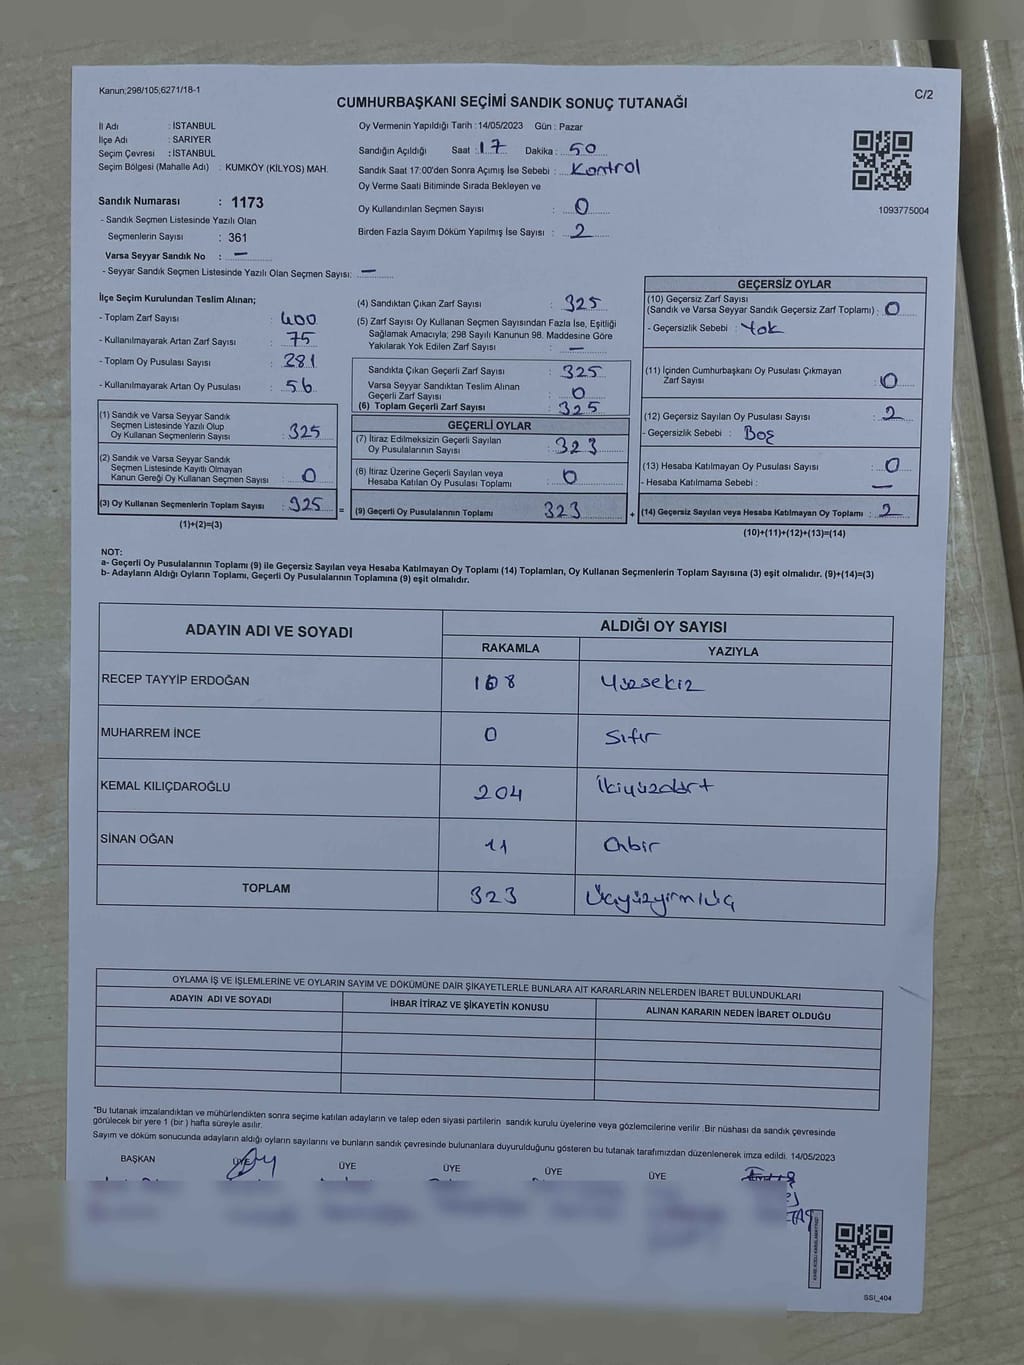 Kanun;298/105;6271/18-1
C/2
CUMHURBAŞKANI SEÇİMİ SANDIK SONUÇ TUTANAĞI
İl Adı : İSTANBUL
İlçe Adı : SARIYER
Seçim Çevresi : İSTANBUL
Seçim Bölgesi (Mahalle Adı) : KUMKÖY (KİLYOS) MAH.
Sandık Numarası : 1173
- Sandık Seçmen Listesinde Yazılı Olan
Seçmenlerin Sayısı : 361
Varsa Seyyar Sandık No : —
- Seyyar Sandık Seçmen Listesinde Yazılı Olan Seçmen Sayısı: —
Oy Vermenin Yapıldığı Tarih : 14/05/2023 Gün : Pazar
Sandığın Açıldığı Saat : 17 Dakika : 50
Sandık Saat 17:00'den Sonra Açımış İse Sebebi : Kontrol
Oy Verme Saati Bitiminde Sırada Bekleyen ve
Oy Kullandırılan Seçmen Sayısı : 0
Birden Fazla Sayım Döküm Yapılmış İse Sayısı : 2
1093775004
İlçe Seçim Kurulundan Teslim Alınan;
- Toplam Zarf Sayısı : 400
- Kullanılmayarak Artan Zarf Sayısı : 75
- Toplam Oy Pusulası Sayısı : 281
- Kullanılmayarak Artan Oy Pusulası : 56
(1) Sandık ve Varsa Seyyar Sandık
Seçmen Listesinde Yazılı Olup
Oy Kullanan Seçmenlerin Sayısı : 325
(2) Sandık ve Varsa Seyyar Sandık
Seçmen Listesinde Kayıtlı Olmayan
Kanun Gereği Oy Kullanan Seçmen Sayısı : 0
(3) Oy Kullanan Seçmenlerin Toplam Sayısı : 325
(1)+(2)=(3)
(4) Sandıktan Çıkan Zarf Sayısı : 325
(5) Zarf Sayısı Oy Kullanan Seçmen Sayısından Fazla İse, Eşitliği
Sağlamak Amacıyla; 298 Sayılı Kanunun 98. Maddesine Göre
Yakılarak Yok Edilen Zarf Sayısı : —
Sandıkta Çıkan Geçerli Zarf Sayısı : 325
Varsa Seyyar Sandıktan Teslim Alınan
Geçerli Zarf Sayısı : 0
(6) Toplam Geçerli Zarf Sayısı : 325
GEÇERLİ OYLAR
(7) İtiraz Edilmeksizin Geçerli Sayılan
Oy Pusulalarının Sayısı : 323
(8) İtiraz Üzerine Geçerli Sayılan veya
Hesaba Katılan Oy Pusulası Toplamı : 0
= (9) Geçerli Oy Pusulalarının Toplamı 323
GEÇERSİZ OYLAR
(10) Geçersiz Zarf Sayısı
(Sandık ve Varsa Seyyar Sandık Geçersiz Zarf Toplamı) : 0
- Geçersizlik Sebebi : Yok
(11) İçinden Cumhurbaşkanı Oy Pusulası Çıkmayan
Zarf Sayısı : 0
(12) Geçersiz Sayılan Oy Pusulası Sayısı : 2
- Geçersizlik Sebebi : Boş
(13) Hesaba Katılmayan Oy Pusulası Sayısı : 0
- Hesaba Katılmama Sebebi : —
+ (14) Geçersiz Sayılan veya Hesaba Katılmayan Oy Toplamı : 2
(10)+(11)+(12)+(13)=(14)
NOT:
a- Geçerli Oy Pusulalarının Toplamı (9) ile Geçersiz Sayılan veya Hesaba Katılmayan Oy Toplamı (14) Toplamları, Oy Kullanan Seçmenlerin Toplam Sayısına (3) eşit olmalıdır. (9)+(14)=(3)
b- Adayların Aldığı Oyların Toplamı, Geçerli Oy Pusulalarının Toplamına (9) eşit olmalıdır.
ADAYIN ADI VE SOYADI ALDIĞI OY SAYISI
RAKAMLA YAZIYLA
RECEP TAYYİP ERDOĞAN 108 Yüzsekiz
MUHARREM İNCE 0 Sıfır
KEMAL KILIÇDAROĞLU 204 İkiyüzdört
SİNAN OĞAN 11 Onbir
TOPLAM 323 Üçyüzyirmiüç
OYLAMA İŞ VE İŞLEMLERİNE VE OYLARIN SAYIM VE DÖKÜMÜNE DAİR ŞİKAYETLERLE BUNLARA AİT KARARLARIN NELERDEN İBARET BULUNDUKLARI
ADAYIN ADI VE SOYADI İHBAR İTİRAZ VE ŞİKAYETİN KONUSU ALINAN KARARIN NEDEN İBARET OLDUĞU
*Bu tutanak imzalandıktan ve mühürlendikten sonra seçime katılan adayların ve talep eden siyasi partilerin sandık kurulu üyelerine veya gözlemcilerine verilir .Bir nüshası da sandık çevresinde
görülecek bir yere 1 (bir ) hafta süreyle asılır.
Sayım ve döküm sonucunda adayların aldığı oyların sayılarını ve bunların sandık çevresinde bulunanlara duyurulduğunu gösteren bu tutanak tarafımızdan düzenlenerek imza edildi. 14/05/2023
BAŞKAN ÜYE ÜYE ÜYE ÜYE ÜYE
SSI_404